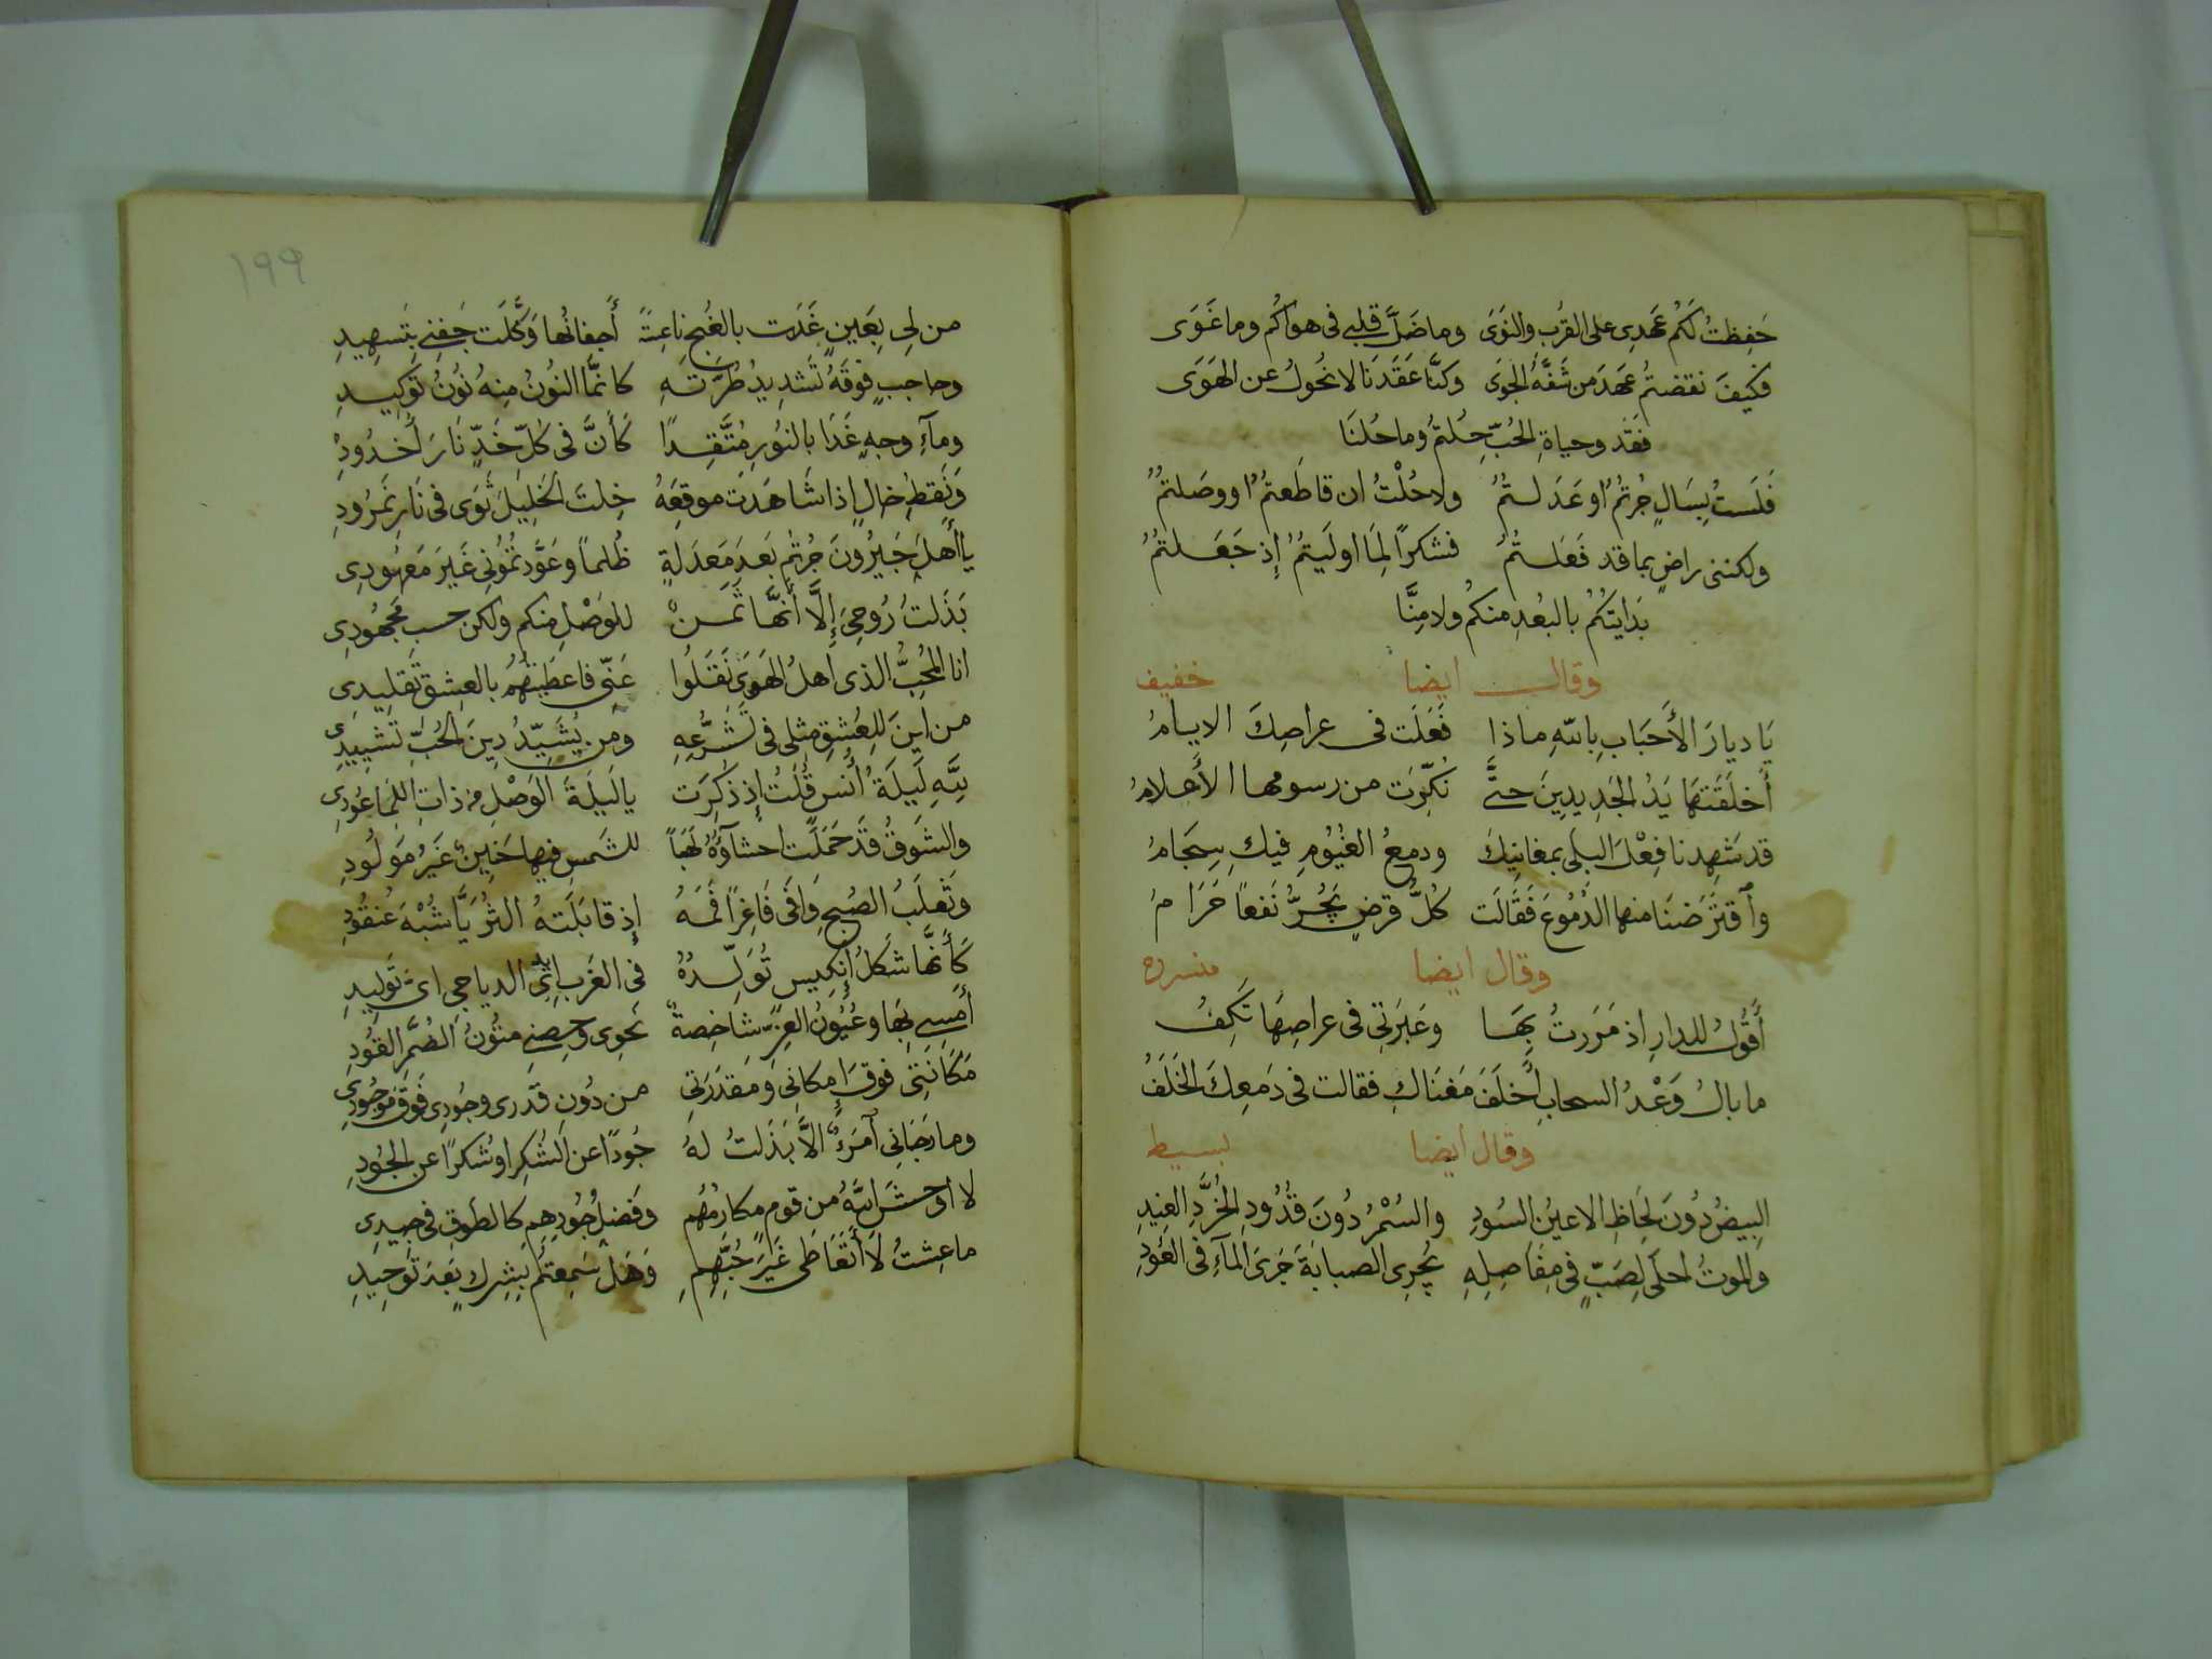 حَفِظتُ لَكُم عَهدِى على القُرب والنَوَى وما ضَلَّ قلبى فى هواكُم وما غَوَى
فكيفَ نقضتُم عَهدَ من شَفَّهُ الجَوَى وكنَّا عَقَدنَا لا نحُولُ عن الهَوَى
فقد وحياةِ الحُبِّ حِلتمُ وما حُلنَا
فَلَستُ بِسَالٍ جُرتمُ او عَدَلتُمُ ولا حُلْتُ ان قاطَعتمُ او وصَلتمُ
ولكننى راضٍ بما قد فَعَلتُمُ فشكرًا لِمَا اولَيتُمُ إذ جَعَلتُمُ
بَدَايتكُمُ بالبُعدِ منكُم ولا مِنَّا
وقال ايضا خفيف
يَا ديارَ الأَحبَابِ بِاللهِ ماذا فَعَلَت فى عراصِكَ الايامُ
أَخلَقَتهَا يَدُ الجَدِيدِينَ حتَّى نُكِّرَت من رسومها الأَعلامُ
قد شَهِدنا فِعْلَ البِلى بمغانِيكَ ودمعُ الغُيُومِ فيكِ سِجَامُ
وٱقتَرَضنَا منها الدُمُوعَ فَقَالَت كُلُّ قرضٍ يَجُرُّ نَفعاً حَرَامُ
وقال ايضا منسرح
أَقُولُ للدارِ اذ مَرَرتُ بِهَا وعَبرَتِى فى عراصِهَا تَكِفُ
ما بالُ وَعْدُ السحابِ أَخلَفَ مَغنَاكِ فقالت فى دَمعِكَ الخَلَفُ
وقال ايضا بسيط
البِيضُ دُونَ لِحَاظِ الاعيُن السُودِ والسُمْرُ دُونَ قُدُودِ الخُرَّدِ الغِيدِ
والموتُ احلَى لِصَبٍّ فى مفَاصِلِهِ تجرِى الصبابَةَ جَرىَ المآءِ فى العُودِ
١٩٩
من لِى بِعَينٍ غَدَت بالغُنجِ ناعِسَةً أَجفانُها وَكَّلَت جَفنى بِتَسهِيدِ
وحاجبٍ فوقَهُ تَشدِيدُ طُرَّتهِ كانَّما النُونُ مِنهُ نُونُ تَوكِيدِ
ومآءِ وجهٍ غَدَا بالنُورِ مُتَّقِدًا كَأَنَّ فى كُلِّ خَدٍّ نَارَ أُخدُودِ
وَنَقطِ خالٍ اذا شَاهَدتَ موقِعَهُ خِلتَ الخَلِيلَ ثَوَى فى نَارِ نَمرُودِ
يا أَهلَ جَيرُونَ جُرتُم بَعدَ مَعدَلةٍ ظُلماً وعَوَّدتُمُونِى غَيرَ مَعهُودِى
بَذَلتُ رُوحِىَ إِلَّا أَنَّها ثَمَنْ للوَصْلِ منكم ولكن حسب مَجهُودِى
انا المُحِبُّ الذى اهلُ الهَوَى نَقَلُوا عَنِّى فاعطَيتُهُم بالعِشقِ تَقلِيدِى
من اينَ للعِشقِ مثلى فى تَشَرُّعِهِ ومن يُشَيِّدُ دِينَ الحُبِّ تَشيِيدِى
للهِ لَيلَةُ أُنسٍ قُلتُ إذ ذُكِرَت يا لَيلَةَ الوَصْلِ من ذاتِ اللَما عُودِى
والشَوقُ قَد حَمَلَت احشآؤُهُ لَهَباً للشَمسِ فيها حَنِينٌ غَيرُ مَولُودِ
وثَعلَبُ الصُبحِ وَافَى فَاغِرًا فَمَهُ إذ قابَلَتهُ الثُرَيَّا شُبْهَ عُنقُودِ
كأَنَّها شَكلُ إنكِيسٍ تُوَلِّدُهُ فى الغَربِ أَيدِى الدياجى اىَّ تَولِيدِ
أُمسِى بِهَا وعُيُونُ العِزِّ شاخِصةٌ نحوِى وحِصنى متُونُ الضُمَّرِ القُودِ
مَكَانَتى فوقَ إمكانِى وَمَقدَرَتِى من دُونِ قدرى وجُودِى فَوقَ مَوجُودِى
وما رَجَانى ٱمرَءٌ الاَّ بَذَلتُ لهُ جُودًا عن الشُكرِ او شُكرًا عن الجُودِ
لا اوحشَ اللهُ من قومٍ مكارمُهُم وفَضلُ جُودِهِم كالطَوقِ فى جِيدِى
ما عِشتُ لا أَتَعَاطَى غَيرَ حُبِّهِمِ وَهَل سَمِعتُم بِشِركٍ بَعدَ تَوحِيدِ